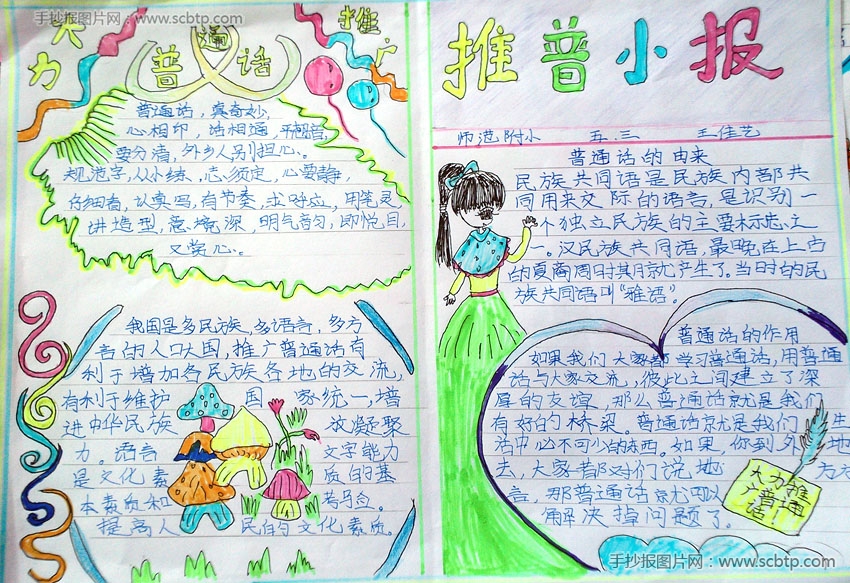 手抄报图片网:www.scbtp.com
大力
推广
普通话
普通话，真奇妙，
心相印，话相通，
要分清，外乡人别担心。
规范字，从小练，心须定，心要静，
仔细看，认真写，有节奏，求对应，用笔灵，
讲造型，意境深，明气韵，即悦目，
又赏心。
我国是多民族，多语言，多方
言的人口大国，推广普通话有
利于增加各民族各地的交流，
有利于维护国家统一，增
进中华民族凝聚
力。语言文字能力
是文化素质的基
本素质和
提高人民的文化素质。
推普小报
师范附小 五.三 王佳艺
普通话的由来
民族共同语是民族内部共
同用来交际的语言，是识别一
个独立民族的主要标志之
一。汉民族共同语，最晚在上古
的夏商周时期就产生了，当时的民
族共同语叫“雅语”。
普通话的作用
如果我们大家都学习普通话，用普通
话与大家交流，彼此之间建立了深
厚的友谊，那么普通话就是我们
有好的桥梁。普通话就是我们生
活中必不可少的东西。如果，你到外地
去，大家都对们说地方
言，那普通话就可以
解决掉问题了。
大力推
广普通
话！
手抄报图片网:www.scbtp.com